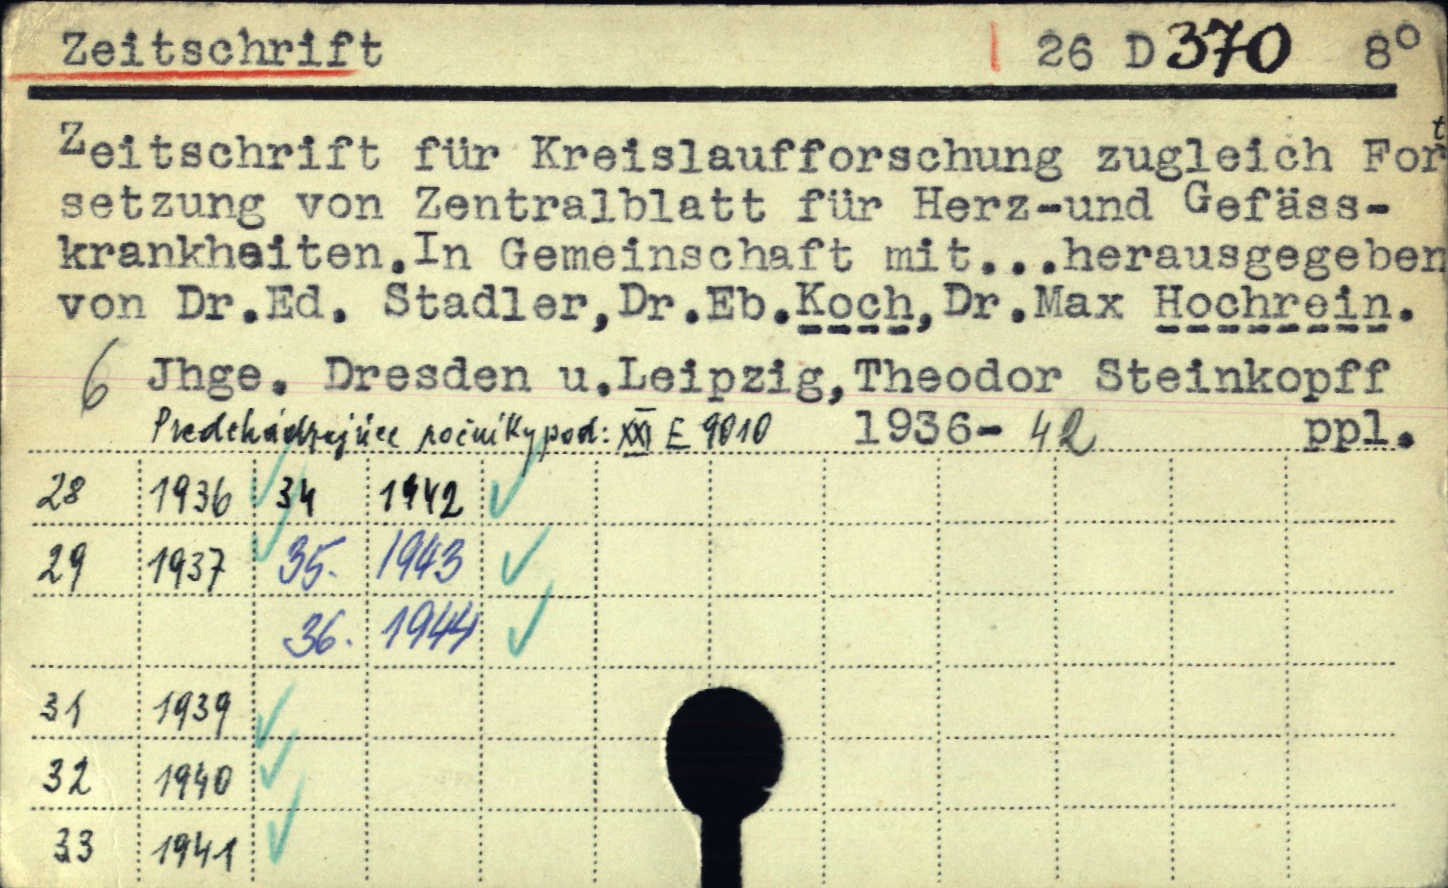 Zeitschrift 26 D 370 8°
Zeitschrift für Kreislaufforschung zugleich Fort
setzung von Zentralblatt für Herz-und Gefäss-
krankheiten.In Gemeinschaft mit...herausgegeben
von Dr.Ed. Stadler,Dr.Eb.Koch,Dr.Max Hochrein.
6 Jhge. Dresden u.Leipzig,Theodor Steinkopff
Predchádzajúce ročníky pod: XXI E 9010 1936-42 ppl.
28 1936 34 1942
29 1937 35. 1943
36. 1944
31 1939
32 1940
33 1941